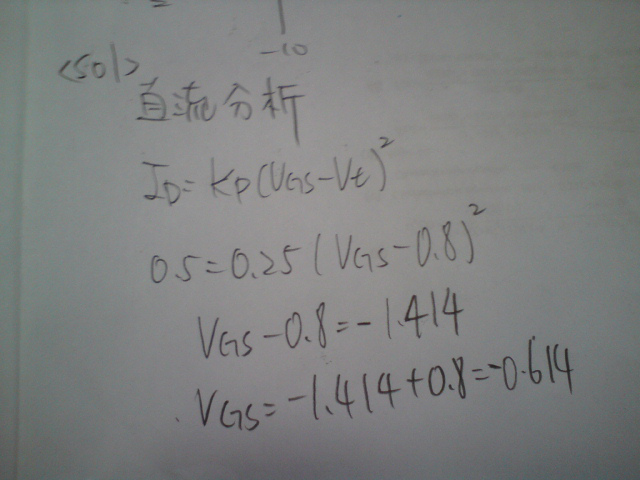 -10
<sol>
直流分析
ID=KP(VGS-Vt)²
0.5=0.25(VGS-0.8)²
VGS-0.8=-1.414
VGS=-1.414+0.8=-0.614